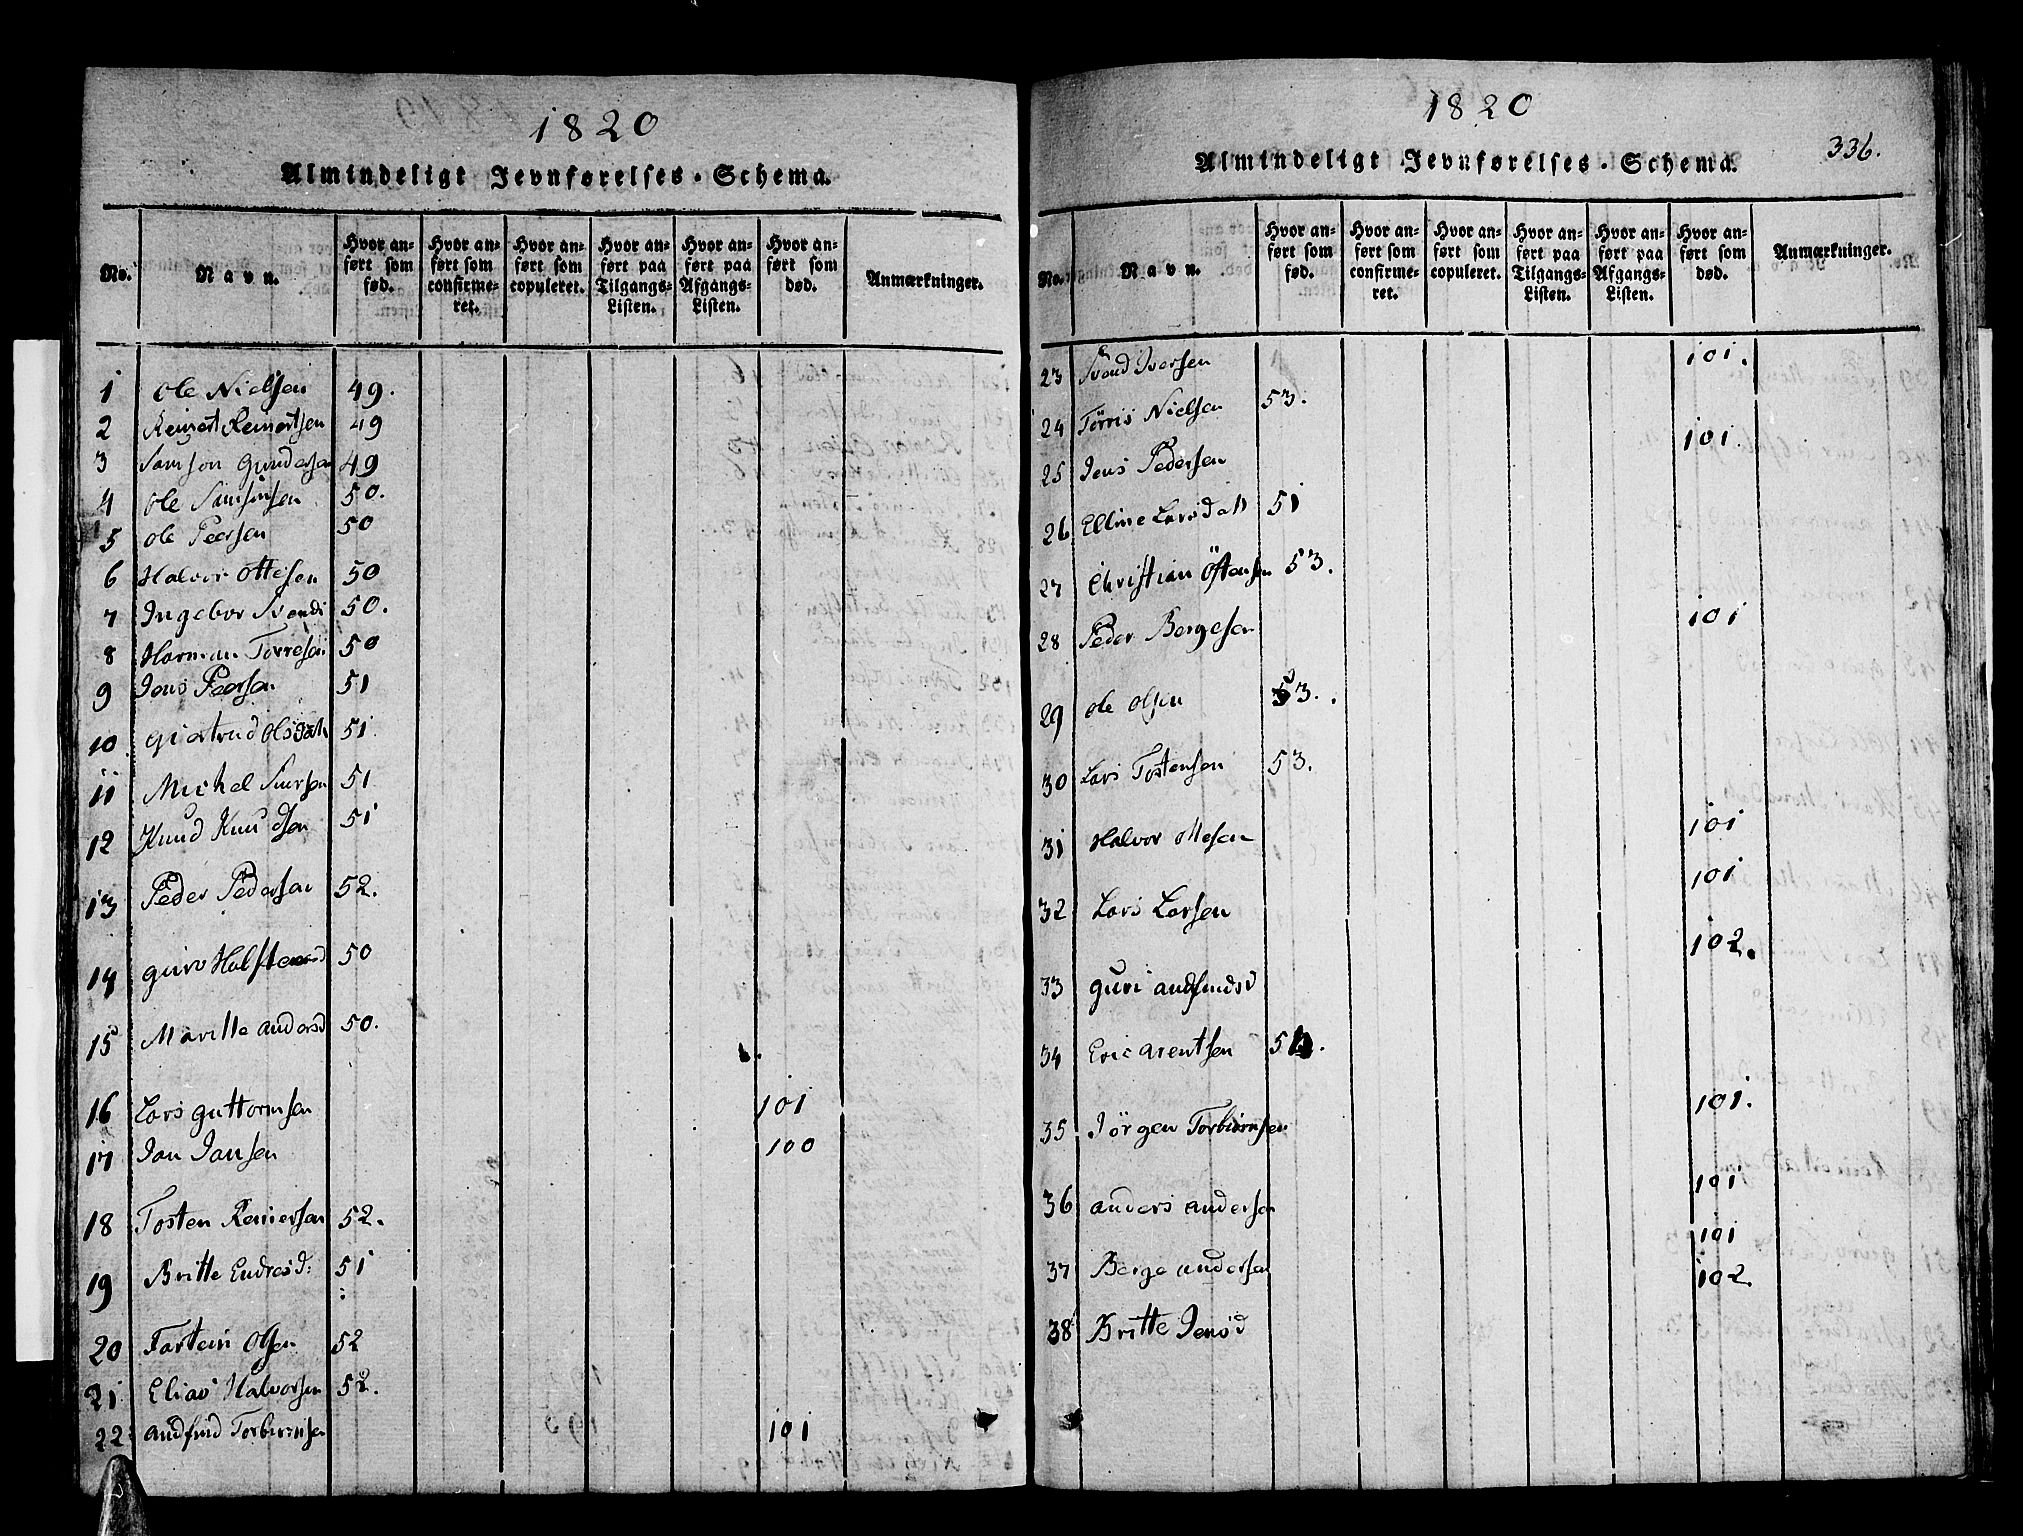 1820
Almindeligt Jevnførelses-Schema.
No. Navn. Hvor anført som fød. Hvor anført som confirmeret. Hvor anført som copuleret. Hvor anført paa Tilgangs-Listen. Hvor anført paa Afgangs-Listen. Hvor anført som død. Anmærkninger.
1 Ole Nielsen 49.
2 Reinert Reinertsen 49
3 Samson Gundersen 49
4 Ole Samsonsen 50.
5 Ole Peersen 50
6 Halvor Ottesen 50
7 Ingebor Svends 50.
8 Herman Torresen 50
9 Jens Peersen 51
10 Giertrud Olsdatr 51.
11 Michel 51
12 Knud Knudsen 51
13 Peder Pedersen 52.
14 Guro Halstensd 50
15 Maritte Andersd 50.
16 Lars Guttormsen 101
17 Jan Jansen 100
18 Tosten Reiniersen 52.
19 Britte Endresd: 51
20 Tortein Olsen 52
21 Elias Halvorsen 52.
22 Andfind Torbiørnsen 101
1820
336.
Almindeligt Jevnførelses-Schema.
No. Navn. Hvor anført som fød. Hvor anført som confirmeret. Hvor anført som copuleret. Hvor anført paa Tilgangs-Listen. Hvor anført paa Afgangs-Listen. Hvor anført som død. Anmærkninger.
23 Svend Iversen 101.
24 Törris Nielsen 53.
25 Jens Pedersen 101.
26 Elline Larsdatr 51
27 Christian Östensen 53.
28 Peder Bergesen 101
29 Ole Olsen 53.
30 Lars Tostensen 53.
31 Halvor Olesen 101
32 Lars Larsen 101
33 Guri Andfindsd 102.
34 Eric Arentsen
35 Jörgen Torbiörnsen 101.
36 Anders Andersen 101
37 Berge Andersen 101
38 Britte Jensd 102.